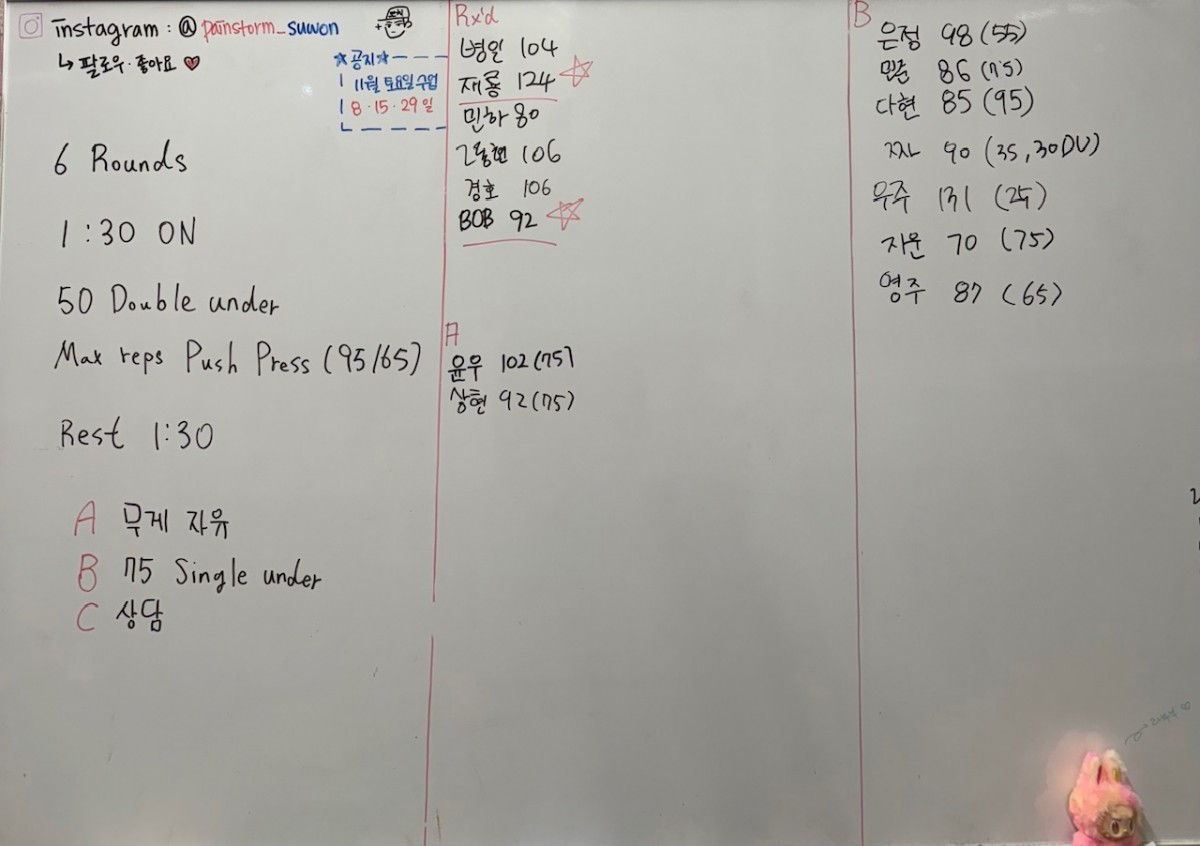 instagram : @ painstorm_suwon
↳ 팔로우·좋아요 ♥
☆공지☆
11월 토요일 수업
8·15·29일
6 Rounds
1:30 ON
50 Double under
Max reps Push Press (95/65)
Rest 1:30
A 무게 자유
B 75 Single under
C 상담
Rx'd
병일 104
재룡 124 ☆
민하 80
106
경호 106
BOB 92 ☆
A
윤우 102 (75)
상현 92 (75)
B
은정 98 (55)
민준 86 (75)
다현 85 (95)
짜사 90 (35, 30DU)
우주 131 (25)
지운 70 (75)
영주 87 (65)